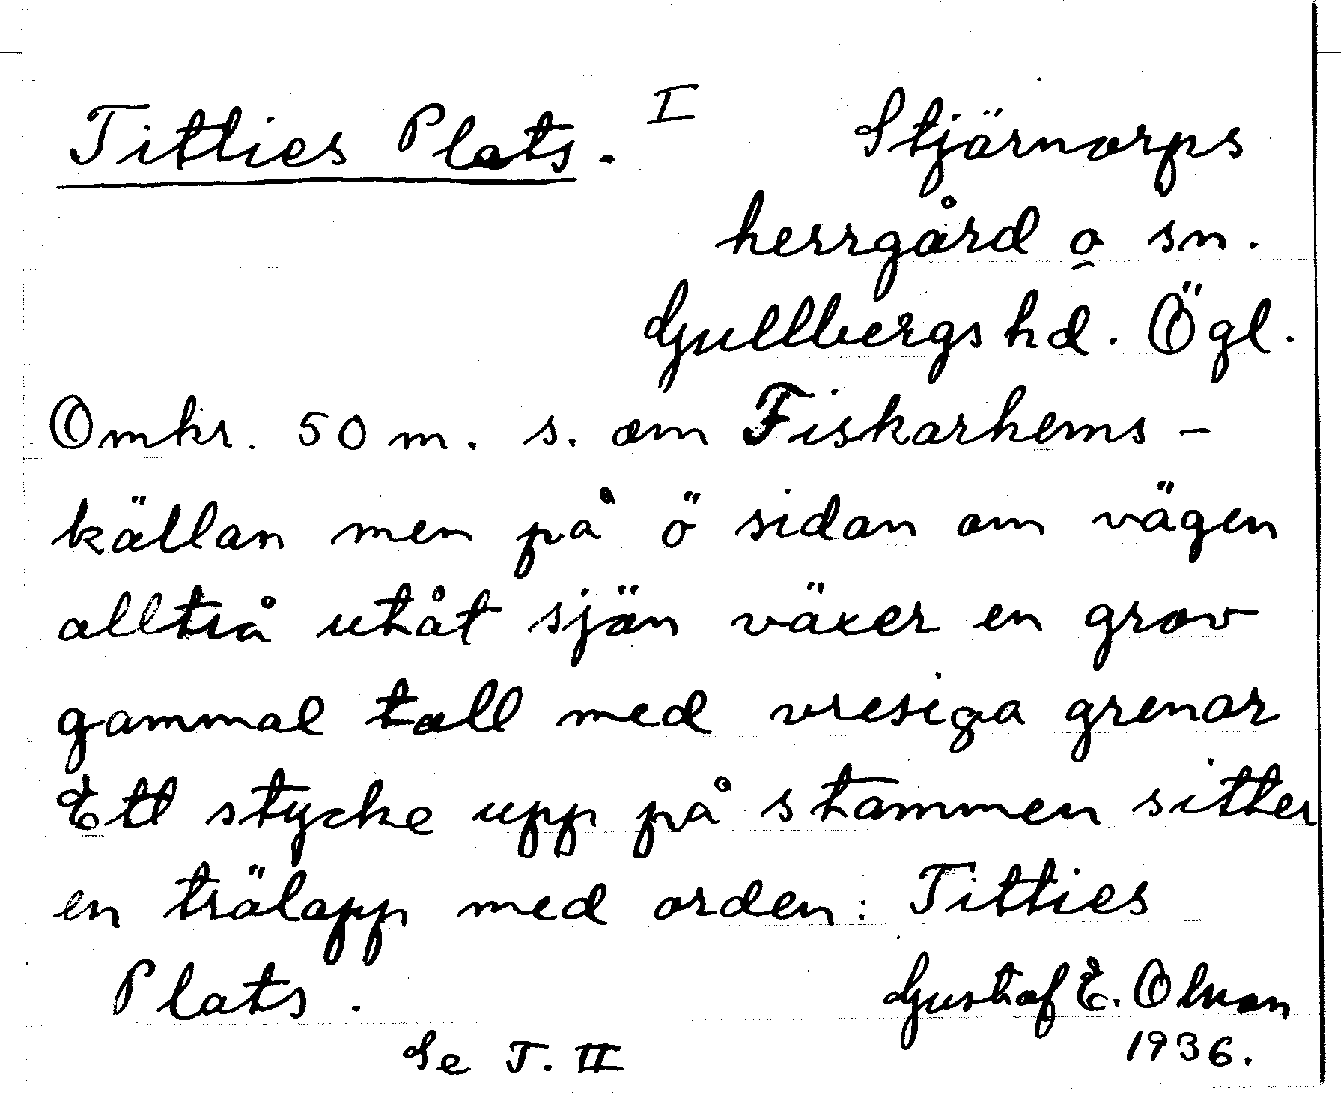 Titties Plats. I Stjärnorps
herrgård o sn.
Gullbergs hd. Ögl.
Omkr. 50 m. s. om Fiskarhems-
källan men på ö sidan om vägen
alltså utåt sjön växer en grov
gammal tall med vresiga grenar
Ett stycke upp på stammen sitter
en trälapp med orden: Titties
Plats.
Gustaf E. Olson
Se T. II
1936.